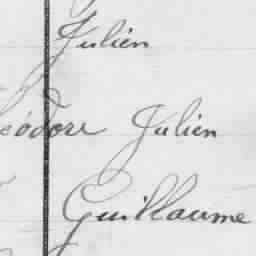 Julien
éodore Julien
Guillaume